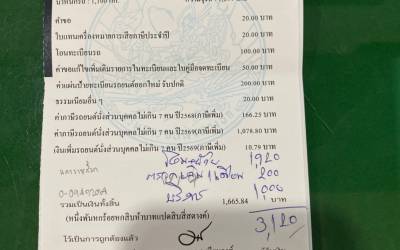 ค่าขอ 20.00 บาท
ใบแทนเครื่องหมายการเสียภาษีประจำปี 20.00 บาท
โอนทะเบียนรถ 100.00 บาท
ค่าขอแก้ไขเพิ่มเติมรายการในทะเบียนและใบคู่มือจดทะเบียน 50.00 บาท
ค่าแผ่นป้ายทะเบียนรถยนต์ออกใหม่ รับปกติ 200.00 บาท
ธรรมเนียมอื่น ๆ 20.00 บาท
ค่าภาษีรถยนต์นั่งส่วนบุคคลไม่เกิน 7 คน ปี2568(ภาษีเพิ่ม) 166.25 บาท
ค่าภาษีรถยนต์นั่งส่วนบุคคลไม่เกิน 7 คน ปี2569(ภาษีเพิ่ม) 1,078.80 บาท
เงินเพิ่มรถยนต์นั่งส่วนบุคคลไม่เกิน 7 คน ปี2569(ภาษีเพิ่ม) 10.79 บาท
1,920
200
บริการ 1,000
รวมเป็นเงินทั้งสิ้น 1,665.84
(หนึ่งพันหกร้อยหกสิบห้าบาทแปดสิบสี่สตางค์)
3,120
ไว้เป็นการถูกต้องแล้ว